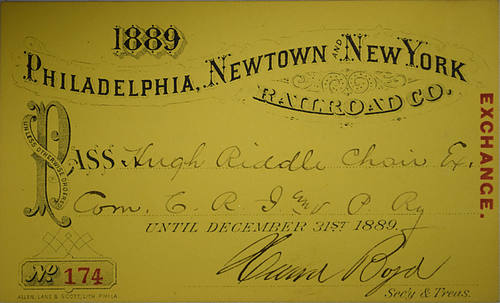 1889
PHILADELPHIA, NEWTOWN AND NEW YORK
RAILROAD CO.
EXCHANGE.
PASS Hugh Riddle Chair Ex.
UNLESS OTHERWISE ORDERED
Com. C. R. I & P Ry
UNTIL DECEMBER 31ST 1889.
No 174
Boyd
Sec'y & Treas.
ALLEN, LANE & SCOTT, LITH. PHILA.